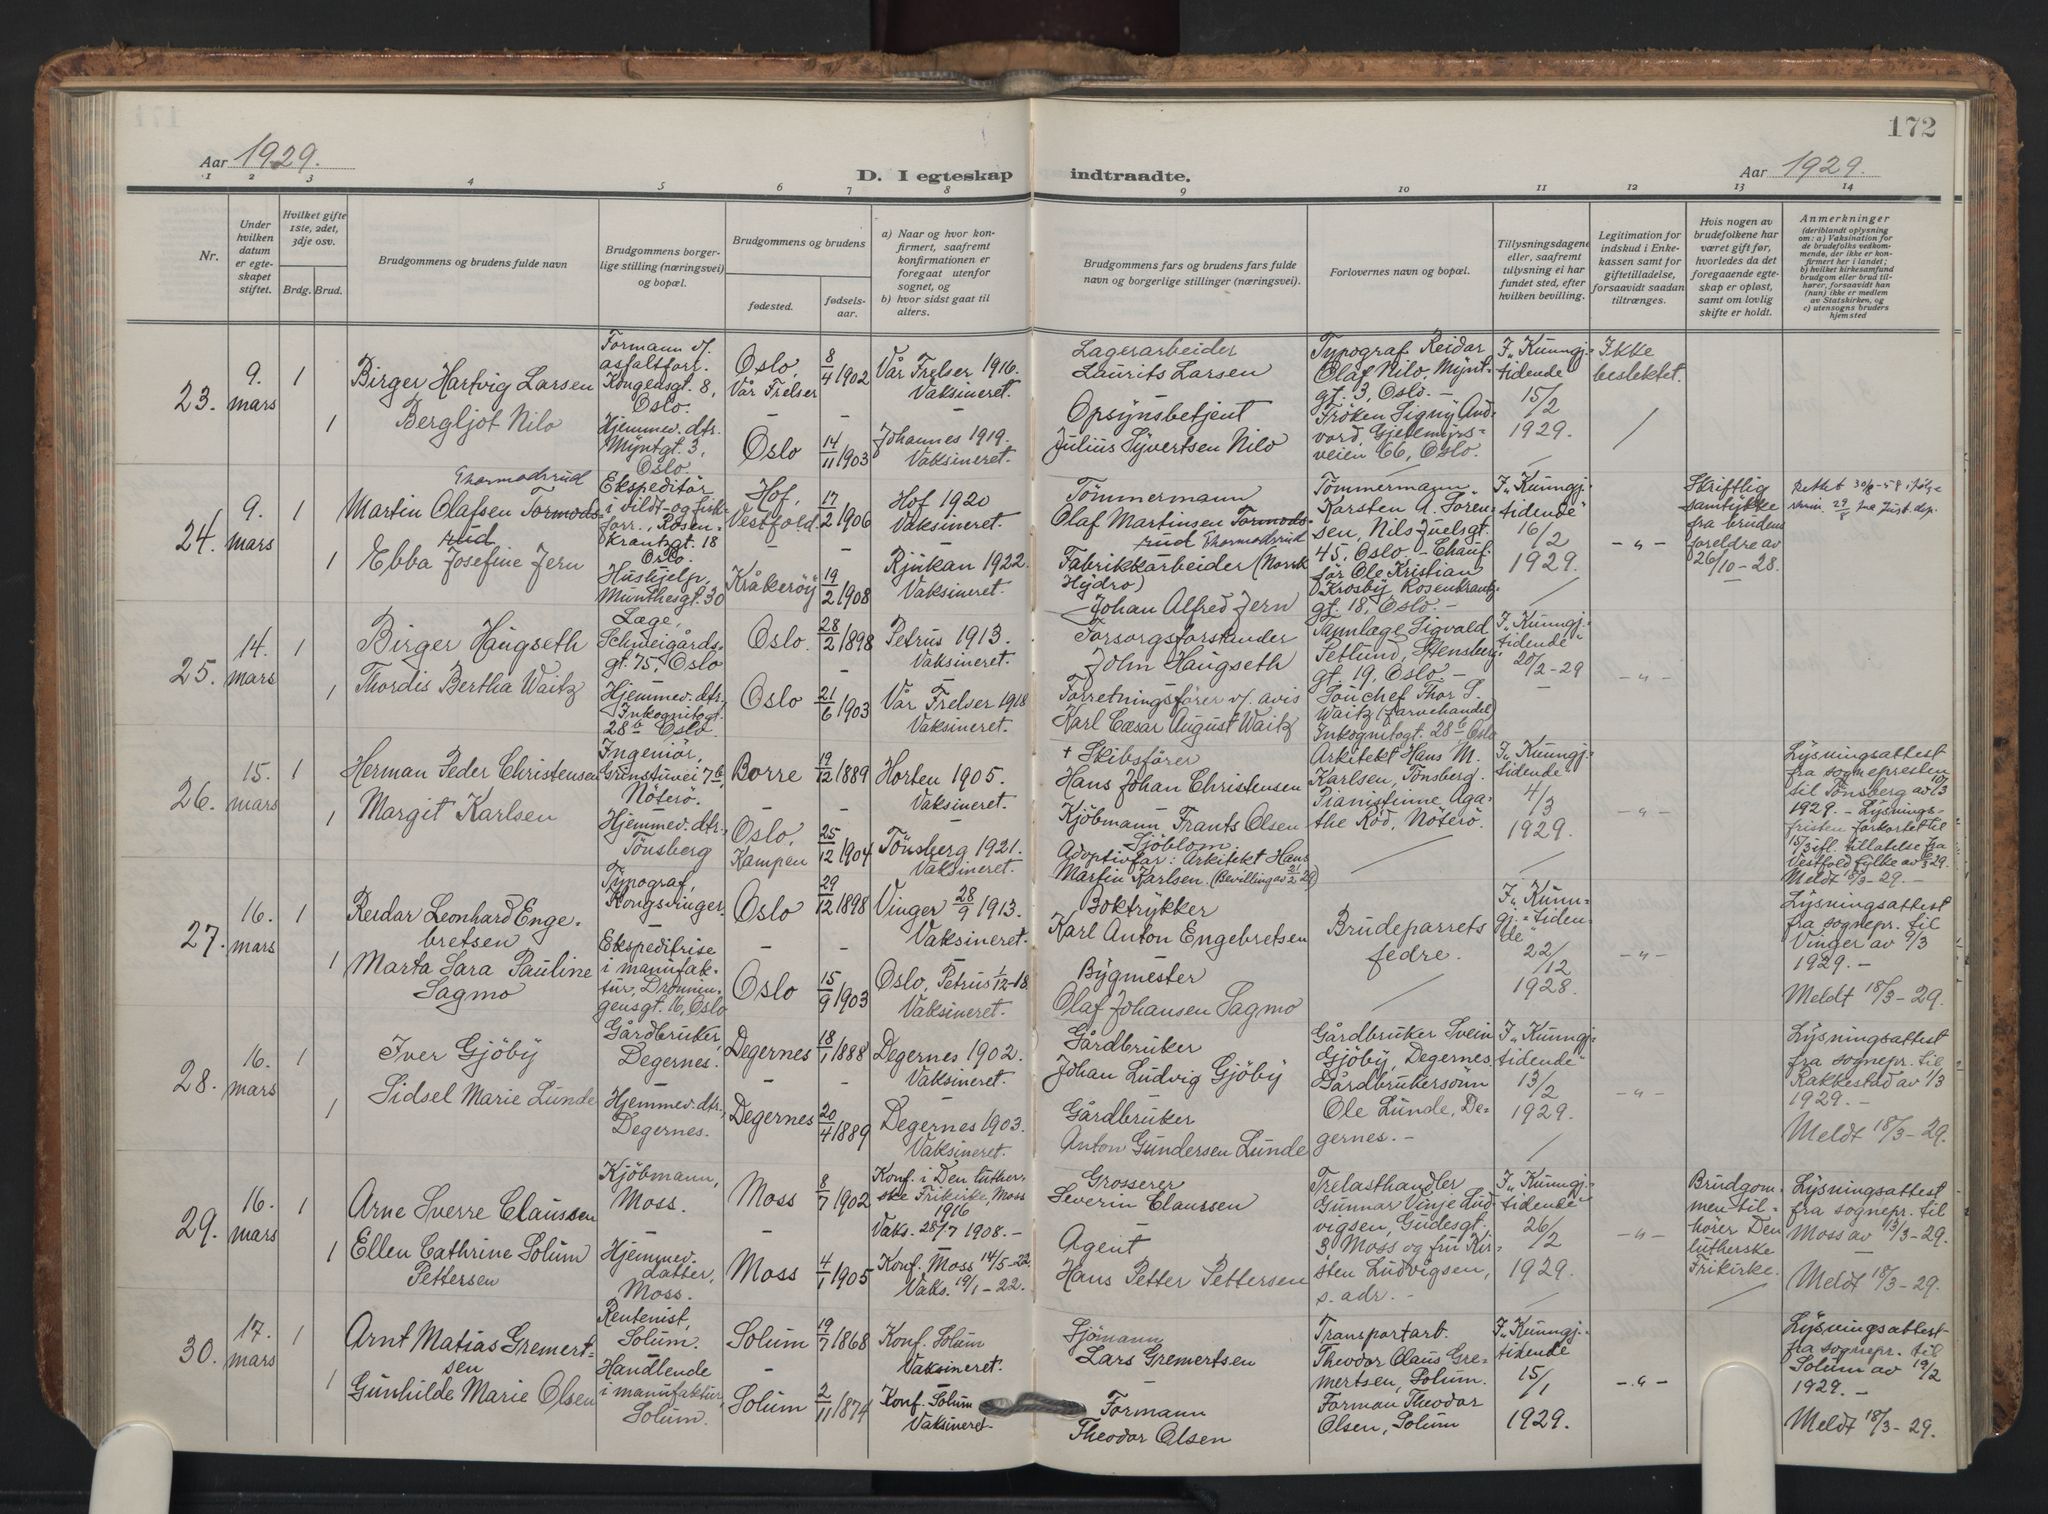 172
Aar 1929.
D. I egteskap indtraadte.
Aar 1929.
1 2 3 4 5 6 7 8 9 10 11 12 13 14
Nr.
Under
hvilken
datum
er egte-
skapet
stiftet.
Hvilket gifte
1ste, 2det,
3dje osv.
Brdg. Brud.
Brudgommens og brudens fulde navn
Brudgommens borger-
lige stilling (næringsvei)
og bopæl.
Brudgommens og brudens
fødested.
fødsels-
aar.
a) Naar og hvor kon-
firmert, saafremt
konfirmationen er
foregaat utenfor
sognet, og
b) hvor sidst gaat til
alters.
Brudgommens fars og brudens fars fulde
navn og borgerlige stillinger (næringsvei).
Forlovernes navn og bopæl.
Tillysningsdagene
eller, saafremt
tillysning ei har
fundet sted, efter
hvilken bevilling.
Legitimation for
indskud i Enke-
kassen samt for
giftetilladelse,
forsaavidt saadan
tiltrænges.
Hvis nogen av
brudefolkene har
været gift før,
hvorledes da det
foregaaende egte-
skap er opløst,
samt om lovlig
skifte er holdt.
Anmerkninger
(deriblandt oplysning
om: a) Vaksination for
de brudefolks vedkom-
mende, der ikke er kon-
firmert her i landet;
b) hvilket kirkesamfund
brudgom eller brud til-
hører, forsaavidt han
(hun) ikke er medlem
av Statskirken, og
c) utensogns bruders
hjemsted
23.
9.
mars
1
Birger Hartvig Larsen
Formann v/
asfaltforr.
Kongensgt. 8,
Oslo.
Oslo,
Vår Frelser
8/4 1902
Vår Frelser 1916.
Vaksineret.
Lagerarbeider
Laurits Larsen
Typograf Reidar
Olaf Nilo, Mynt-
gt. 3, Oslo. -
Frøken Signy And-
vord, Gjetemyrs-
veien 66, Oslo.
I „Kunngj.-
tidende
15/2
1929.
Ikke
beslektet.
1
Bergljot Nilo
Hjemmev. dtr.
Myntgt. 3,
Oslo.
Oslo
14/11 1903
Johannes 1919.
Vaksineret.
Opsynsbetjent
Julius Syvertsen Nilo
24.
9.
mars
1
Thormodsrud
Martin Olafsen Tormods-
rud
Ekspeditör
i sildt- og fisk-
forr., Rosen-
krantzgt. 18
Oslo.
Hof,
Vestfold.
17/2 1906
Hof 1920
Vaksineret.
Tömmermann
Olaf Martinsen Tormods-
rud Thormodsrud
Tömmermann
Karsten A. Sören-
sen, Nils Juelsgt.
45, Oslo. - Chauf-
för Ole Kristian
Krosby Rosenkrantz-
gt. 18, Oslo. -
I „Kunngj.-
tidende"
16/2
1929.
- „ -
Skriftlig
samtykke
fra brudens
foreldre av
26/10 - 28.
Rettet 30/8-58 i følge
skriv. 29/8 fra Just.dep.
1
Ebba Josefine Jern
Hushjelp,
Munthesgt. 30
Kråkeröy
19/2 1908
Rjukan 1922.
Vaksineret.
Fabrikkarbeider (Norsk
Hydro)
Johan Alfred Jern
25.
14.
mars
1
Birger Haugseth
Læge,
Schweigårds-
gt. 75, Oslo
Oslo.
28/2 1898
Petrus 1913.
Vaksineret.
Forsorgsforstander
John Haugseth
Tannlæge Sigvald
Setlund, Stensberg-
gt. 19, Oslo. -
Souchef Thor S.
Waitz (farvehandel)
Inkognitogt. 28 b, Oslo
I „Kunngj.-
tidende"
20/2 - 29
- „ -
1
Thordis Bertha Waitz
Hjemmev. dtr.,
Inkognitogt.
28 b Oslo.
Oslo
21/6 1903
Vår Frelser 1918
Vaksineret.
Forretningsförer v/ avis
Karl Cæsar August Waitz
26.
15.
mars
1
Herman Peder Christensen
Ingeniör,
Grinstuvei 7 b,
Nöterö.
Borre
19/12 1889
Horten 1905.
Vaksineret.
+ Skibsförer
Hans Johan Christensen
Arkitekt Hans M.
Karlsen, Tönsberg.
Pianistinne Aga-
the Röd, Nöterö.
I „Kunngj.-
tidende"
4/3
1929.
- „ -
Lysningsattest
fra sognepresten
til Tönsberg av 10/3
1929. - Lysnings-
fristen forkortet til
15/3 ifl. tillatelse fra
Vestfold fylke av 6/3 29.
Meldt 18/3 - 29. -
1
Margit Karlsen
Hjemmev. dtr.
Tönsberg
Oslo,
Kampen
25/12 1904
Tönsberg 1921.
Vaksineret.
Kjöbmann Frants Olsen
Sjöblom
Adoptivfar: Arkitekt Hans
Martin Karlsen. (Bevilling av 21/2 29)
27.
16.
mars
1
Reidar Leonhard Enge-
bretsen
Typograf,
Kongsvinger
Oslo
29/12 1898
Vinger 28/9 1913.
Vaksineret.
Boktrykker
Karl Anton Engebretsen
Brudeparrets
fedre.
I „Kunn-
gj.-tiden-
de"
22/12
1928.
- „ -
Lysningsattest
fra sognepr. til
Vinger av 9/3
1929. -
Meldt 18/3 - 29.
1
Marta Sara Pauline
Sagmo
Ekspeditrise
i manufak-
tur, Dronnin-
gensgt. 16, Oslo
Oslo
15/9 1903
Oslo, Petrus 1/12-18.
Vaksineret.
Bygmester
Olaf Johansen Sagmo
28.
16.
mars
1
Iver Gjöby
Gårdbruker,
Degernes.
Degernes
18/1 1888
Degernes 1902.
Vaksineret.
Gårdbruker
Johan Ludvig Gjöby
Gårdbruker Svein
Gjöby, Degernes.
Gårdbrukersönn
Ole Lunde, De-
gernes. -
I „Kunngj.-
tidende"
13/2
1929.
- „ -
Lysningsattest
fra sognepr. til
Rakkestad av 1/3
1929. -
Meldt 18/3 - 29.
1
Sidsel Marie Lunde
Hjemmev. dtr.,
Degernes.
Degernes
20/4 1889
Degernes 1903.
Vaksineret.
Gårdbruker
Anton Gundersen Lunde
29.
16.
mars
1
Arne Sverre Claussen
Kjöbmann,
Moss.
Moss
8/7 1902
Konf. i Den luther-
ske Frikirke, Moss
1916
Vaks. 28/7 1908. -
Grosserer
Severin Claussen
Trelasthandler
Gunnar Vinje Lud-
vigsen, Gudesgt.
3, Moss og fru Kir-
sten Ludvigsen,
s. adr. -
I „Kunngj.-
tidende"
26/2
1929.
- „ -
Brudgom-
men til-
hörer Den
lutherske
Frikirke.
Lysningsattest
fra sognepr. til
Moss av 13/3 - 29.
Meldt 18/3 - 29.
1
Ellen Cathrine Solum
Pettersen
Hjemmev.
datter,
Moss.
Moss
4/1 1905
Konf. Moss 14/5-22.
Vaks. 19/1 - 22.
Agent
Hans Petter Pettersen
30.
17.
mars
1
Arnt Matias Gremert-
sen
Rentenist,
Solum.
Solum
19/7 1868
Konf. Solum
Vaksineret.
Sjömann
Lars Gremertsen
Transportarb.
Theodor Claus Gre-
mertsen, Solum.
Forman Theodor
Olsen, Solum
I „Kunngj.-
tidende
15/1
1929.
- „ -
Lysningsattest
fra sognepr. til
Solum av 19/2
1929. -
Meldt 18/3 - 29.
1
Gunhilde Marie Olsen
Handlende
i manufaktur,
Solum.
Solum
2/11 1874
Konf. Solum
Vaksineret.
Formann
Theodor Olsen